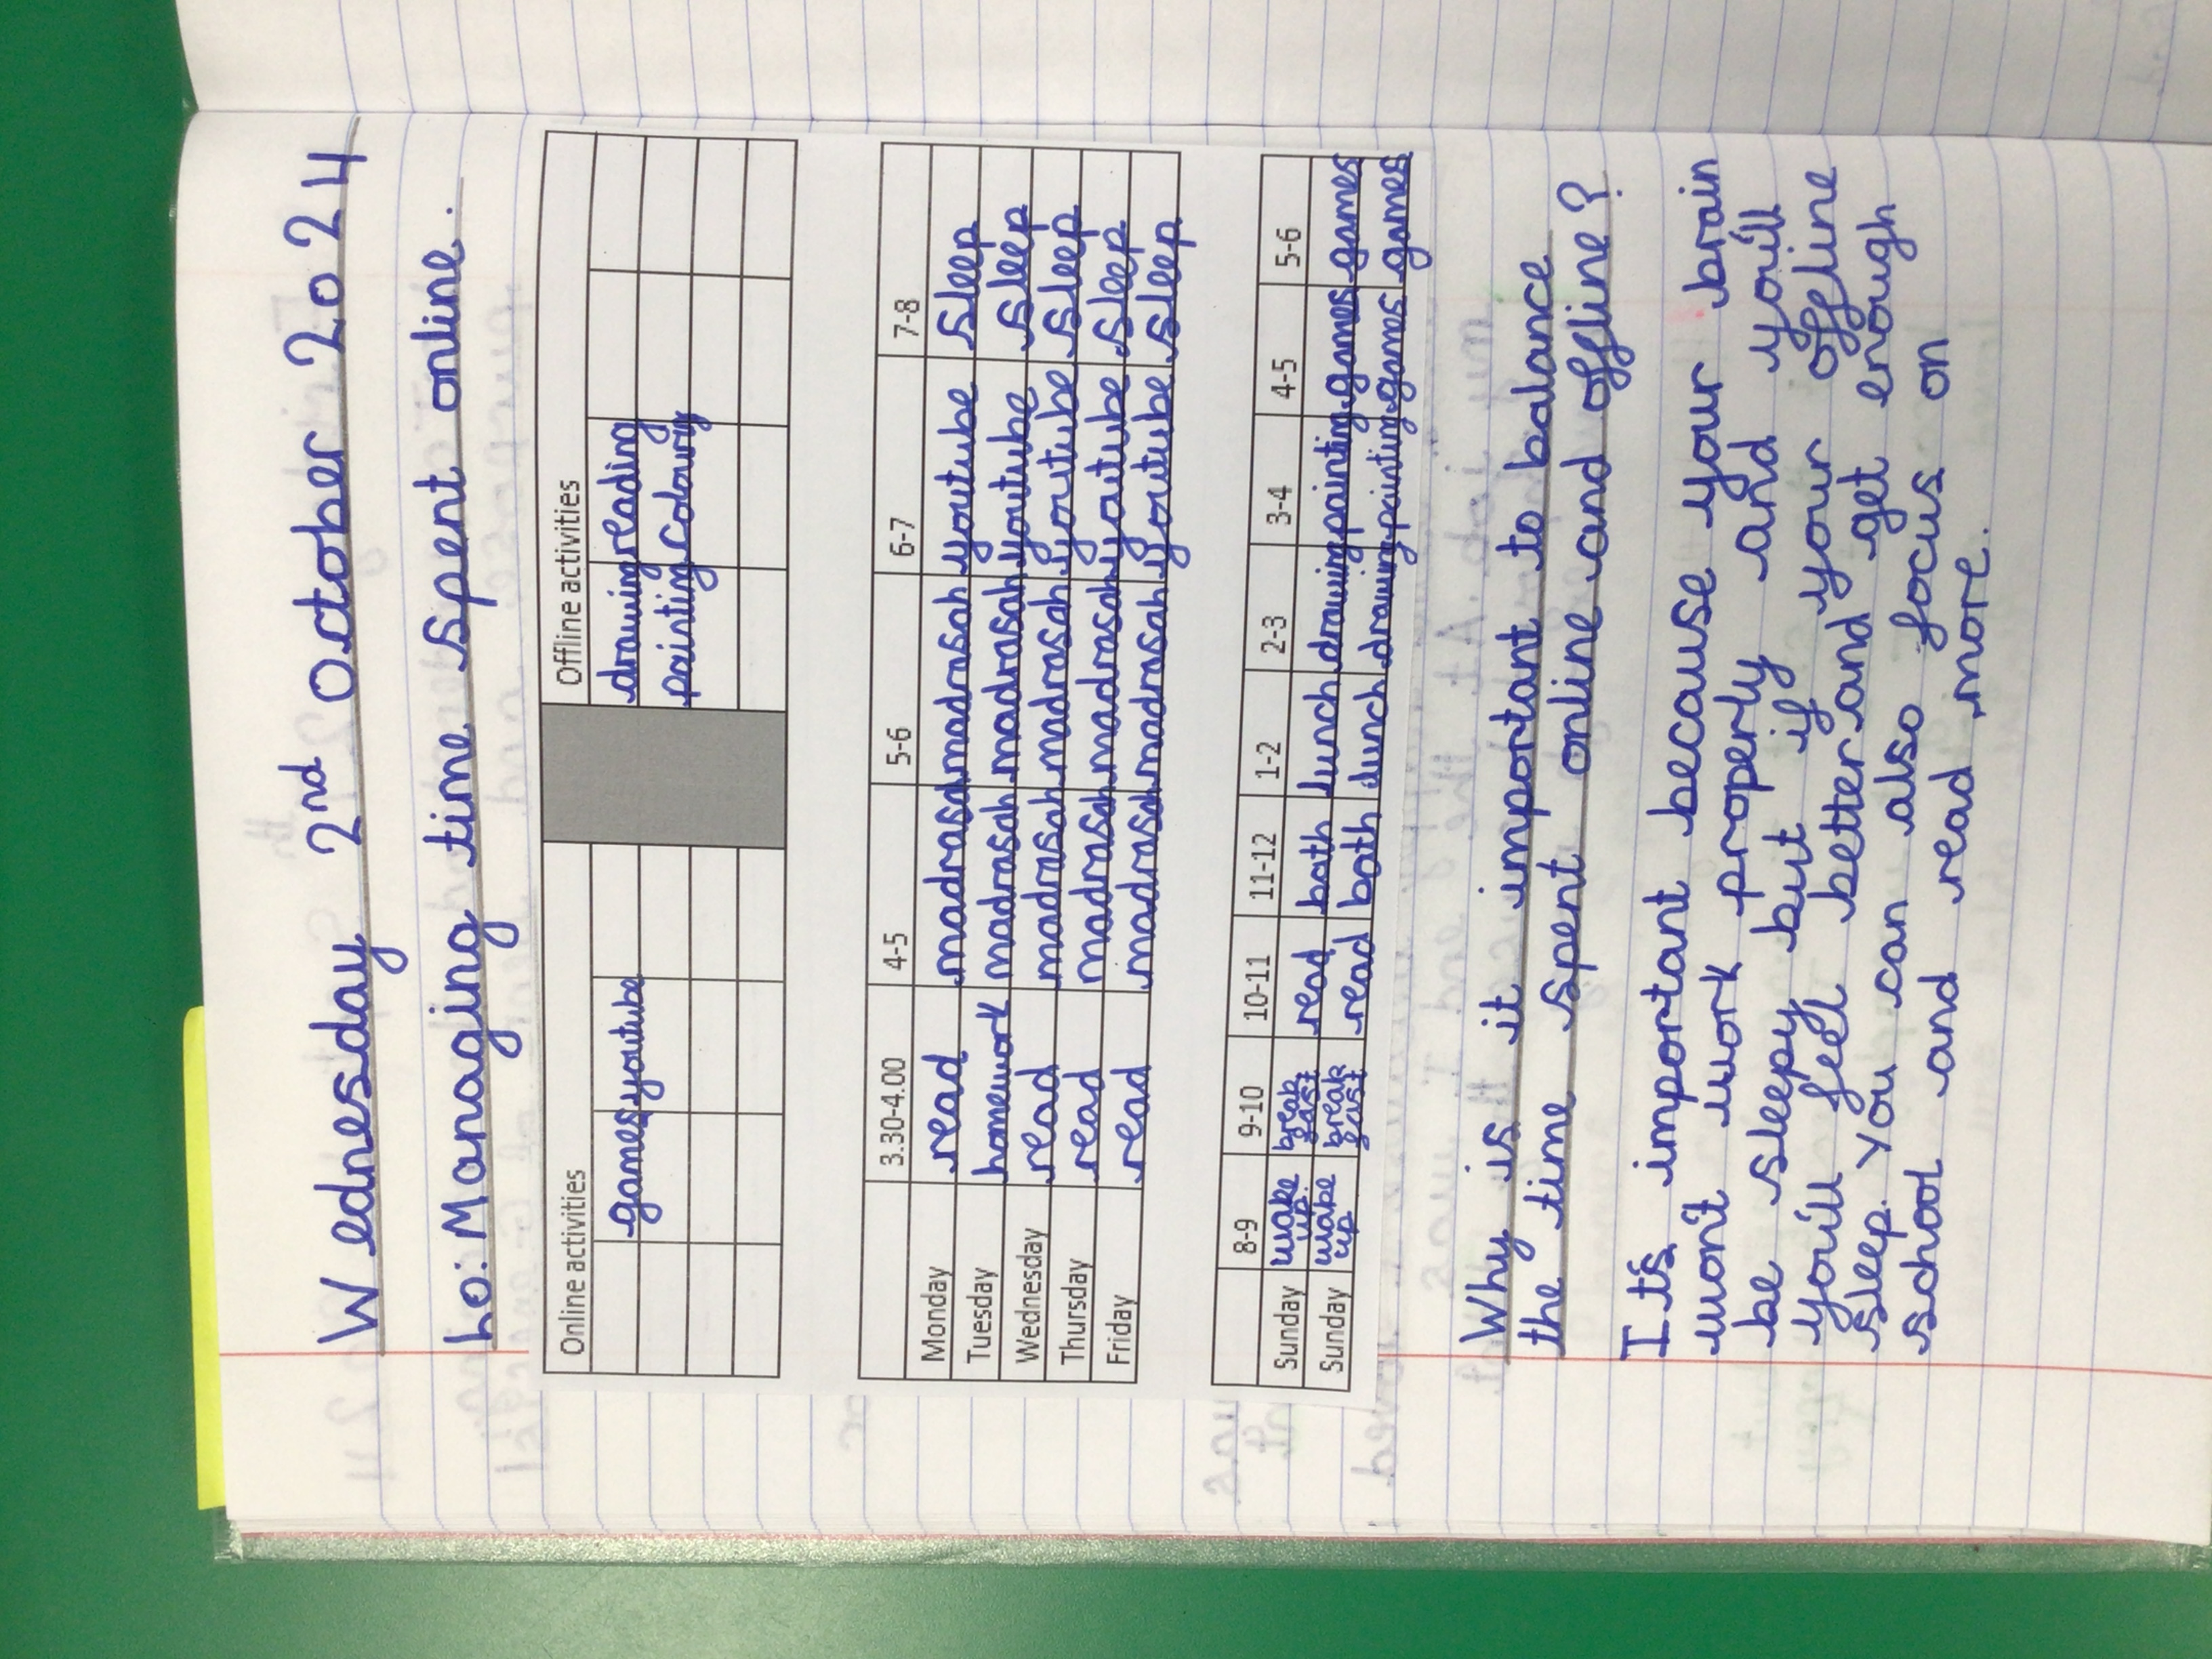 Wednesday 2nd October 2024
Lo: Managing time spent online.
Online activities Offline activities
games youtube drawing reading
painting Colouring
3.30-4.00 4-5 5-6 6-7 7-8
Monday read madrasa madrasah youtube Sleep
Tuesday homework madrasah madrasah youtube sleep
Wednesday read madrasah madrasah youtube sleep
Thursday read madrasah madrasah youtube sleep
Friday read madrasah madrasah youtube sleep
8-9 9-10 10-11 11-12 1-2 2-3 3-4 4-5 5-6
Sunday wake up. break fast read bath lunch drawing painting games games
Sunday wake up break fast read bath lunch drawing painting games games
Why is it important to balance
the time spent online and offline?
It's important because your brain
won't work properly and you'll
be sleepy but if your offline
you'll feel better and get enough
sleep. You can also focus on
school and read more.